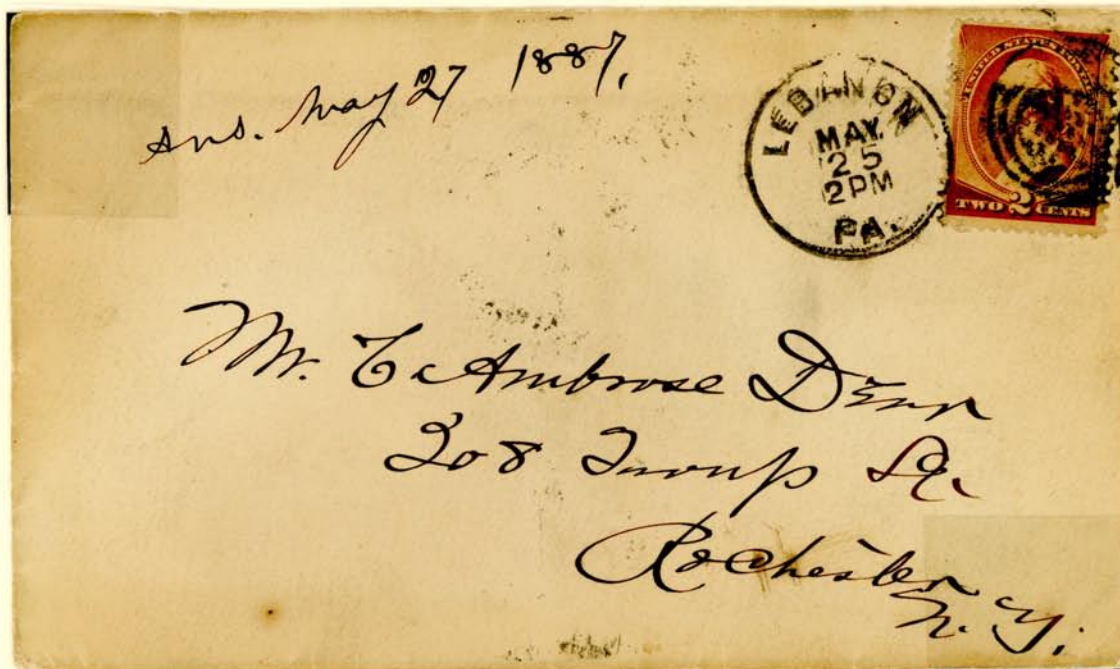 Ans. May 27 1887.
LEBANON
MAY.
25
2PM
PA.
UNITED STATES POSTAGE
TWO 2 CENTS
Mr. C. Ambrose Dean
308 Troup St.
Rochester
N. Y.